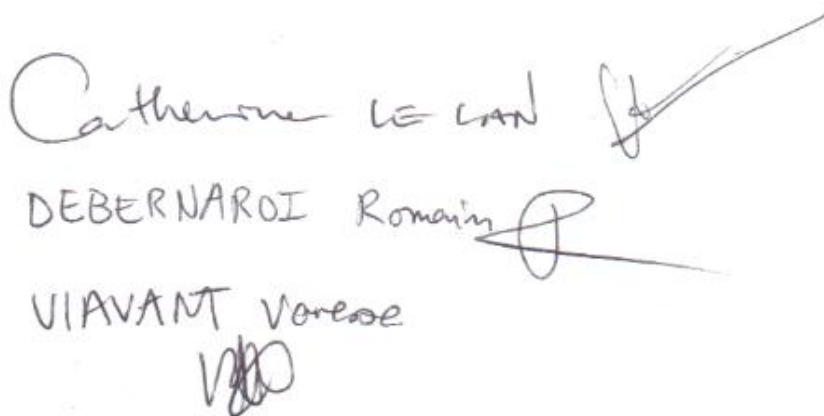 Catherine LE LAN
DEBERNARDI Romain
VIAVANT